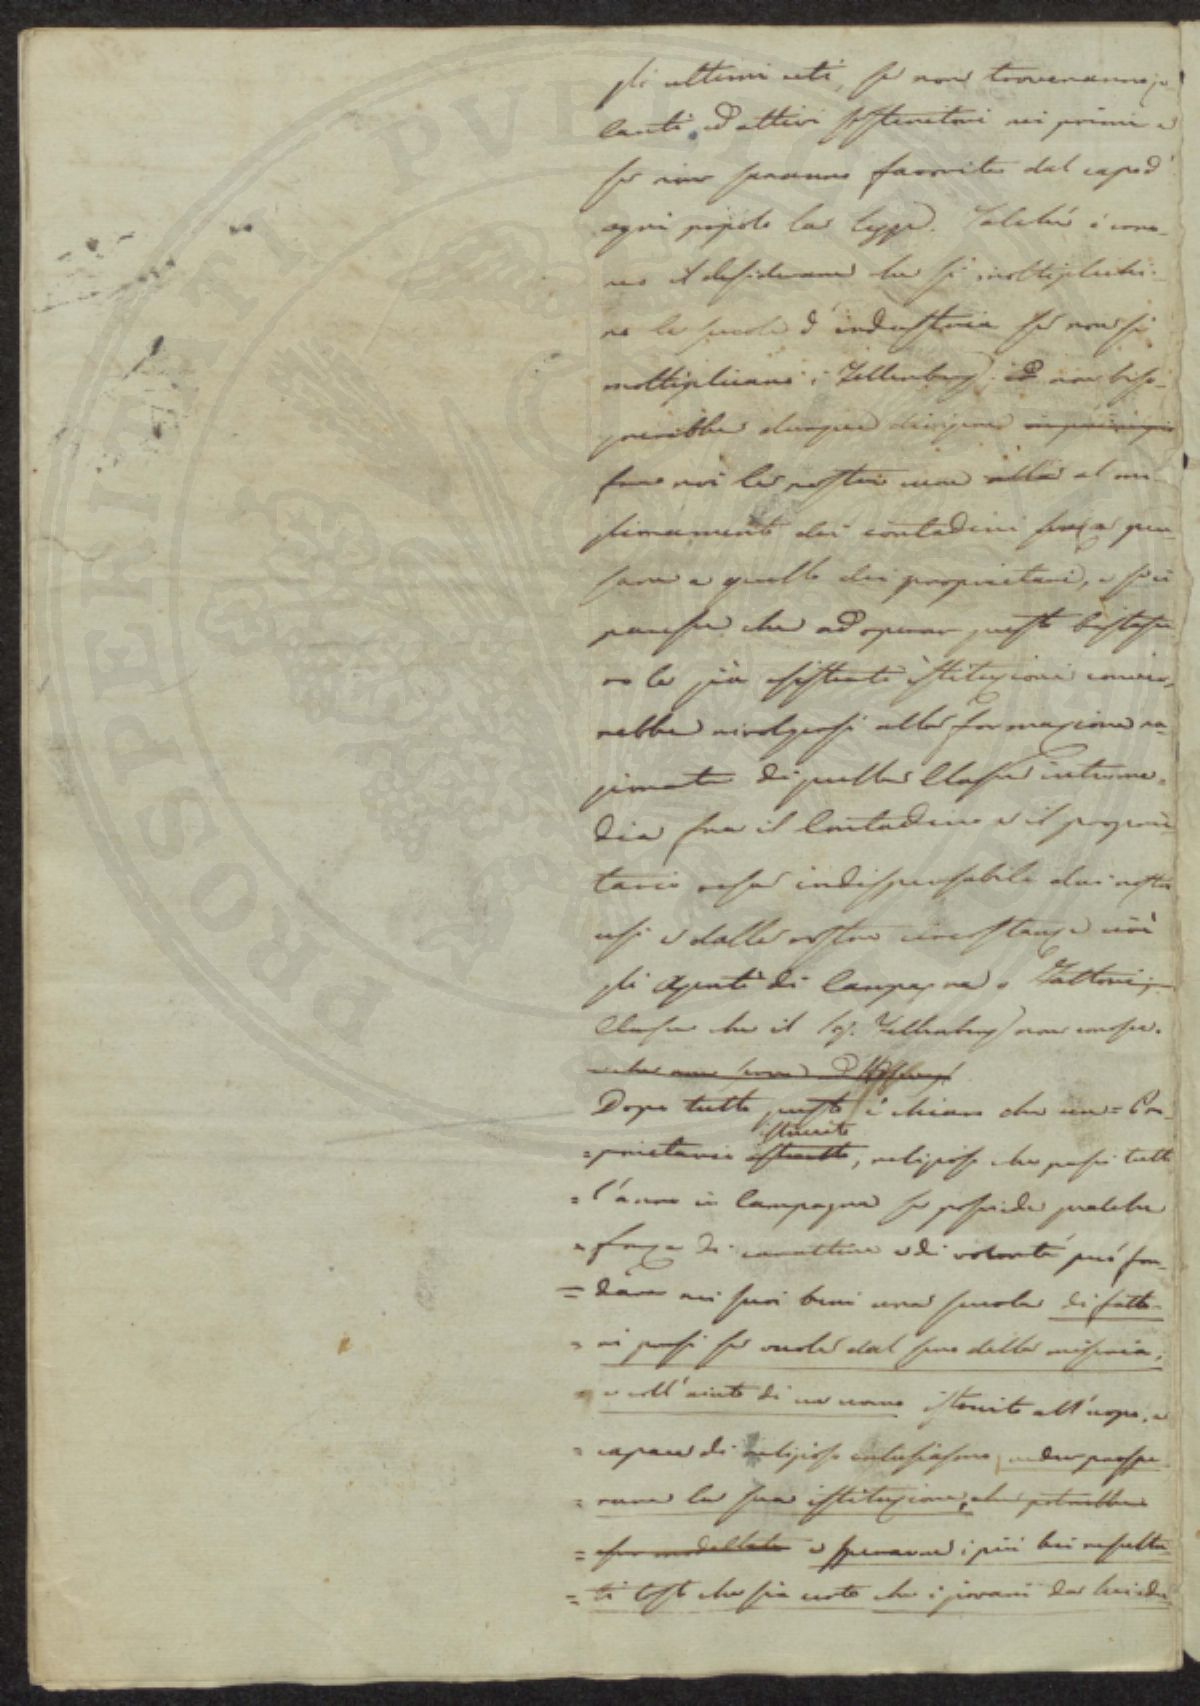 gli ultimi ceti, se non troveranno ze
lanti ed attivi sostenitori nei primi e
se non saranno favorite dal capo d'
ogni popolo la legge. Talché è vano
il desiderare che si moltiplichi-
no le scuole d'industria se non si
moltiplicano i Fellenberg: e non biso-
gnerebbe dunque dirigere in principio
fra noi le nostre cure alla al mi-
glioramento dei contadini senza pen-
sare a quello dei proprietari, e se ci
paresse che ad operar questo bastasse
ro le già esistenti istituzioni conver-
rebbe rivolgersi alla formazione ra-
gionata di quella Classe interme-
dia fra il Contadino e il proprie-
tario resa indispensabile dai nostri
usi e dalle nostre circostanze cioè
gli Agenti di Campagna o Fattori,
Classe che il Sig. Fellenberg non conosce.
e che non sono ad Hofwyl
Dopo tutto questo è chiaro che un = Pro-
= prietario istrutto istruito, religioso che passi tutto
= l'anno in Campagna se possiede qualche
= forza di carattere e di volontà può fon-
= dare nei suoi beni una scuola di fatto-
= ri presi se vuole dal seno della miseria,
= e coll'aiuto di un uomo istruito all'uopo, e
= capace di religioso entusiasmo, veder prospe-
= rare la sua istituzione, che potrebbe
= esser modellata e sperarne i più bei resulta-
= ti tosto che sia certo che i giovani da lui edu